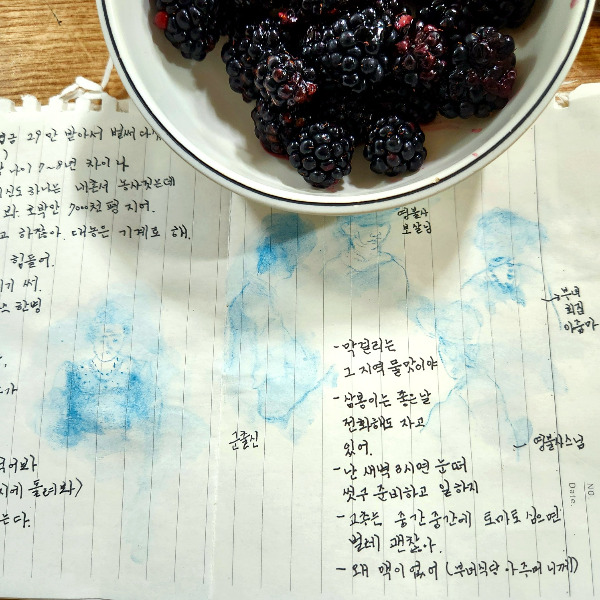 29만 받아서 벌써 다
)
나이 7~8년 차이 나
하나는 내촌서 농사짓는데
호박만 7000천 평 지어.
하잖아. 대농은 기계로 해.
힘들어.
써.
한명
먹어봐
돌려봐>
는다.
영불사
보살님
부녀
회집
아줌마
- 막걸리는
그 지역 물맛이야
- 삼봉이는 좋은날
전화해도 자고
있어.
군출신
영불사스님
- 난 새벽 3시면 눈떠
씻구 준비하고 일하지
- 고추는 중간중간에 토마토 심으면
벌레 괜찮아.
- 왜 맥이 없어 (부녀식당 아주머니께)
NO.
Date.